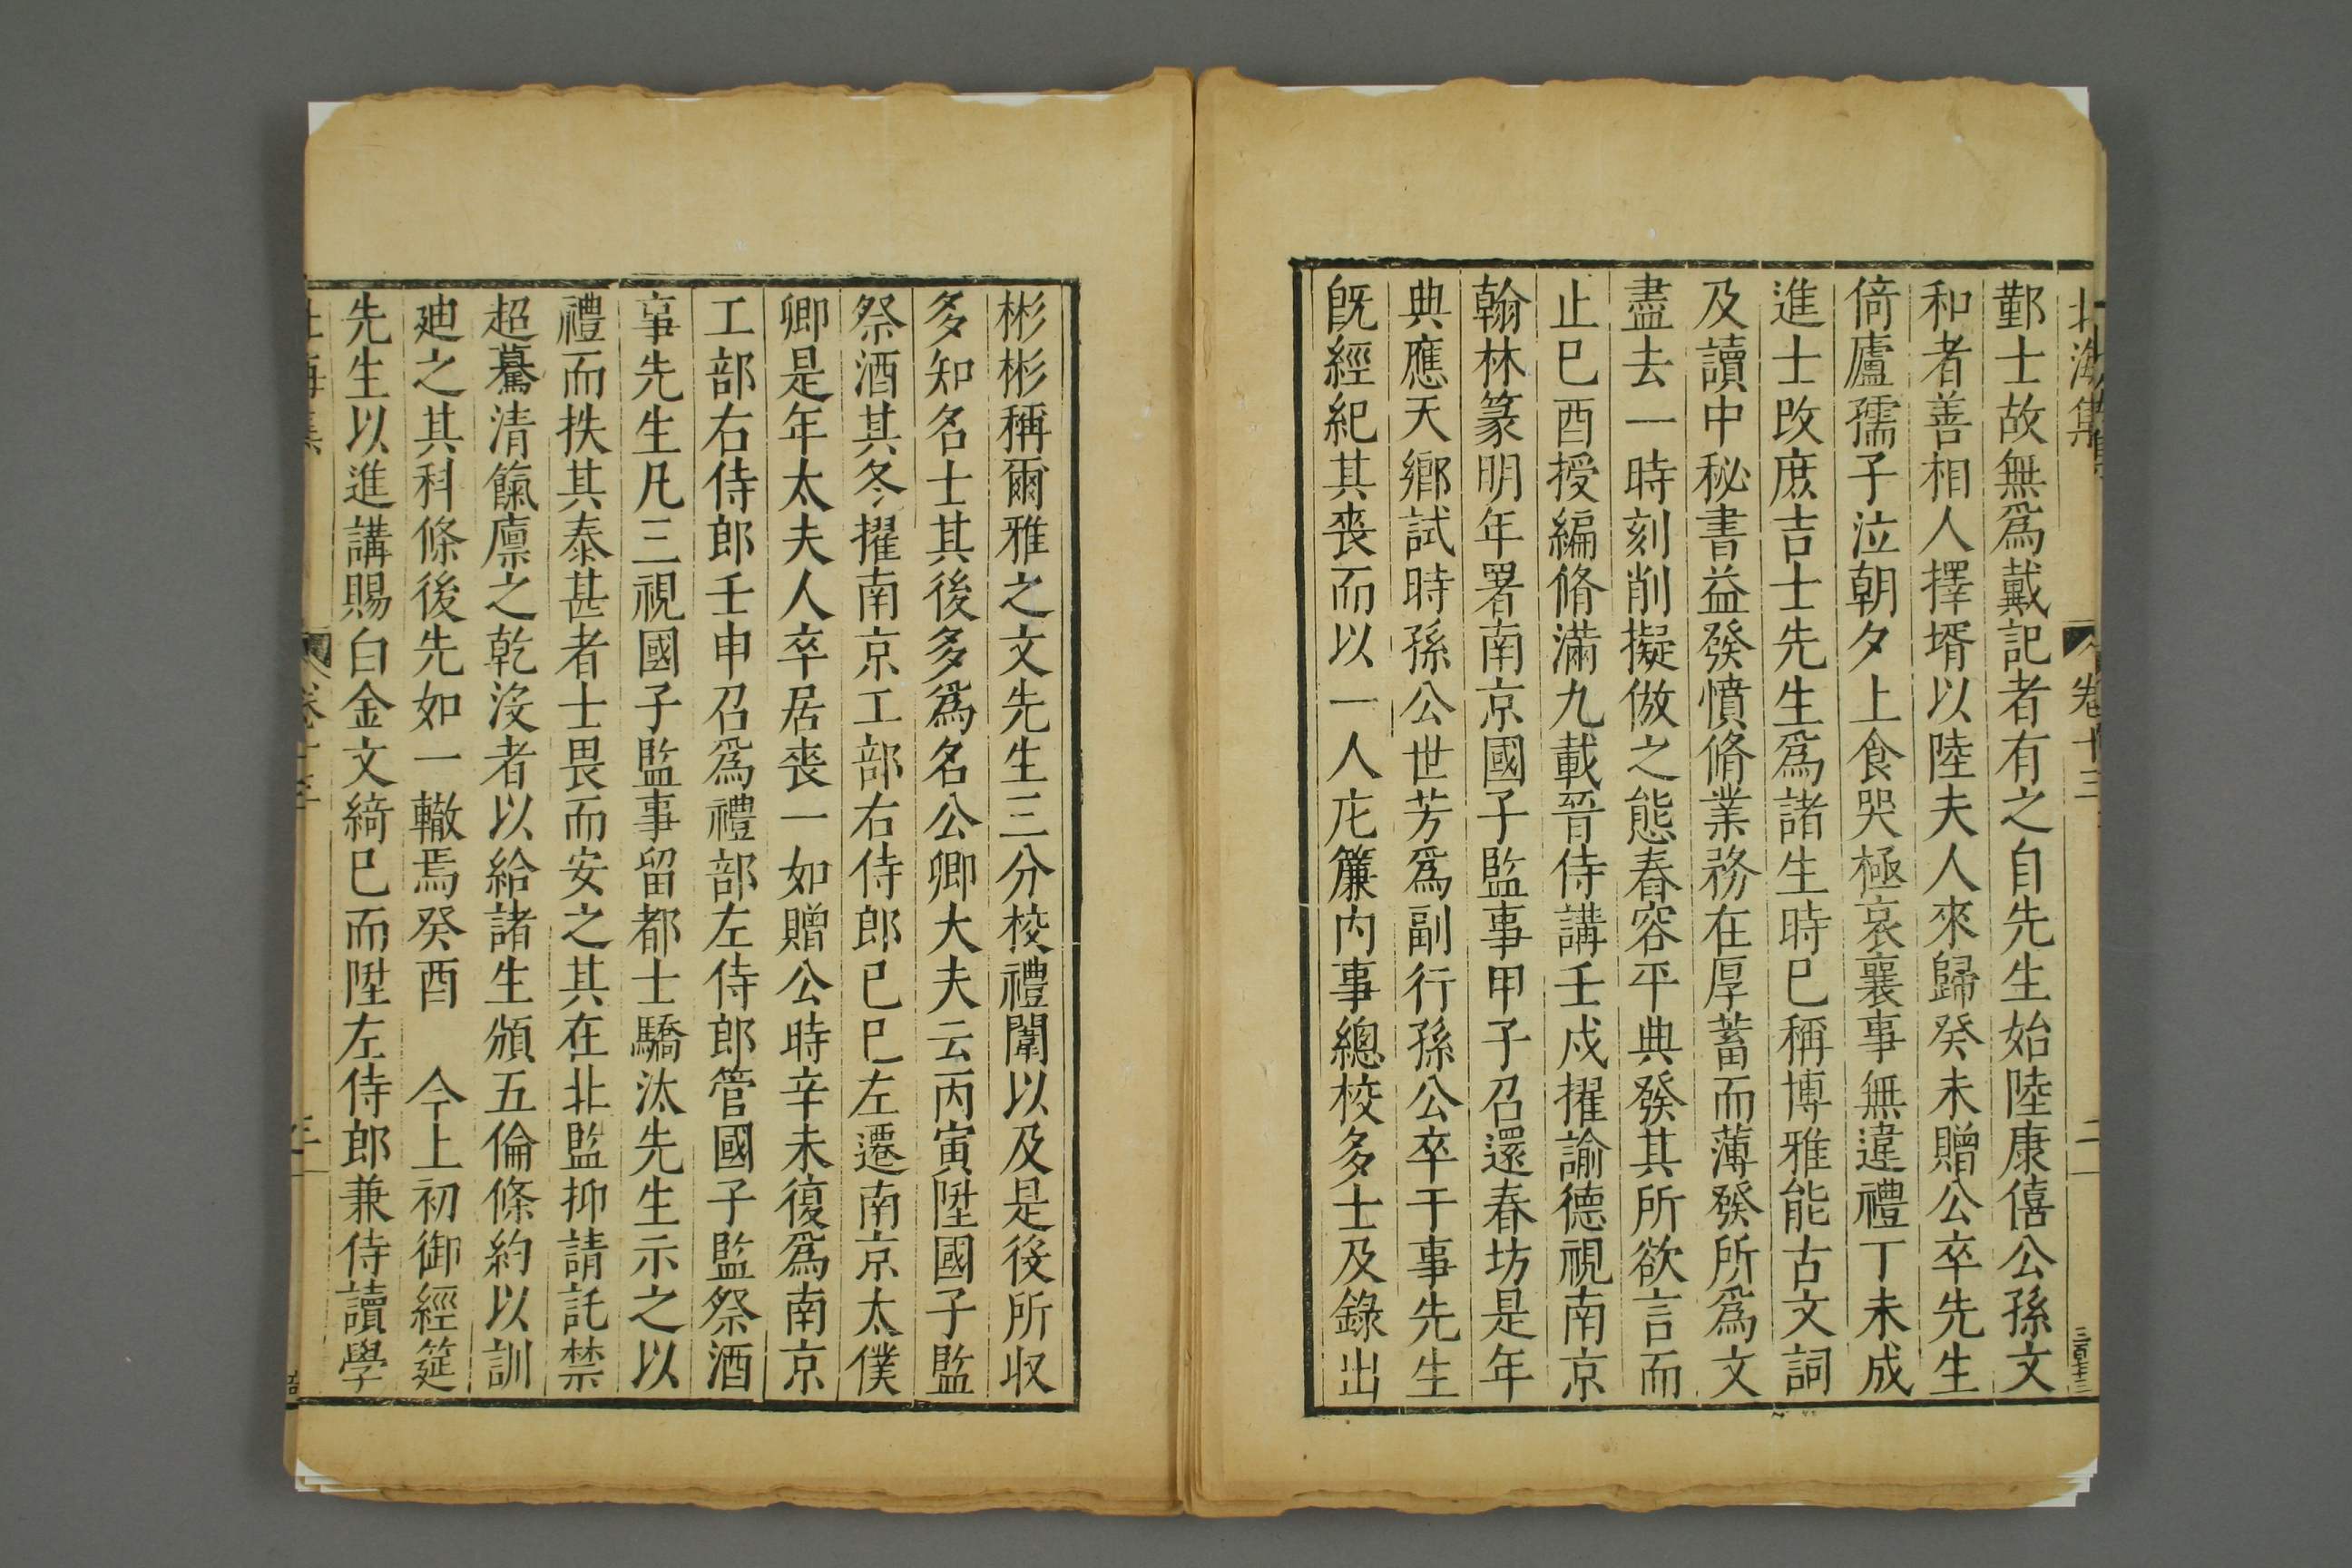 北海集 卷十三 二
鄞士故無爲戴記者有之自先生始陸康僖公孫文
和者善相人擇壻以陸夫人來歸癸未贈公卒先生
倚廬孺子泣朝夕上食哭極哀襄事無違禮丁未成
進士改庶吉士先生爲諸生時巳稱博雅能古文詞
及讀中秘書益發憤脩業務在厚蓄而薄發所爲文
盡去一時刻削擬倣之態舂容平典發其所欲言而
止巳酉授編脩滿九載晉侍講壬戍擢諭德視南京
翰林篆明年署南京國子監事甲子召還春坊是年
典應天鄉試時孫公世芳爲副行孫公卒于事先生
旣經紀其喪而以一人庀簾内事總校多士及錄出
彬彬稱爾雅之文先生三分校禮闈以及是後所収
多知名士其後多爲名公卿大夫云丙寅陞國子監
祭酒其冬擢南京工部右侍郎巳巳左遷南京太僕
卿是年太夫人卒居喪一如贈公時辛未復爲南京
工部右侍郎壬申召爲禮部左侍郎管國子監祭酒
事先生凡三視國子監事留都士驕汰先生示之以
禮而抶其泰甚者士畏而安之其在北監抑請託禁
超驀清餼廪之乾沒者以給諸生頒五倫條約以訓
廸之其科條後先如一轍焉癸酉　今上初御經筵
先生以進講賜白金文綺巳而陞左侍郎兼侍讀學